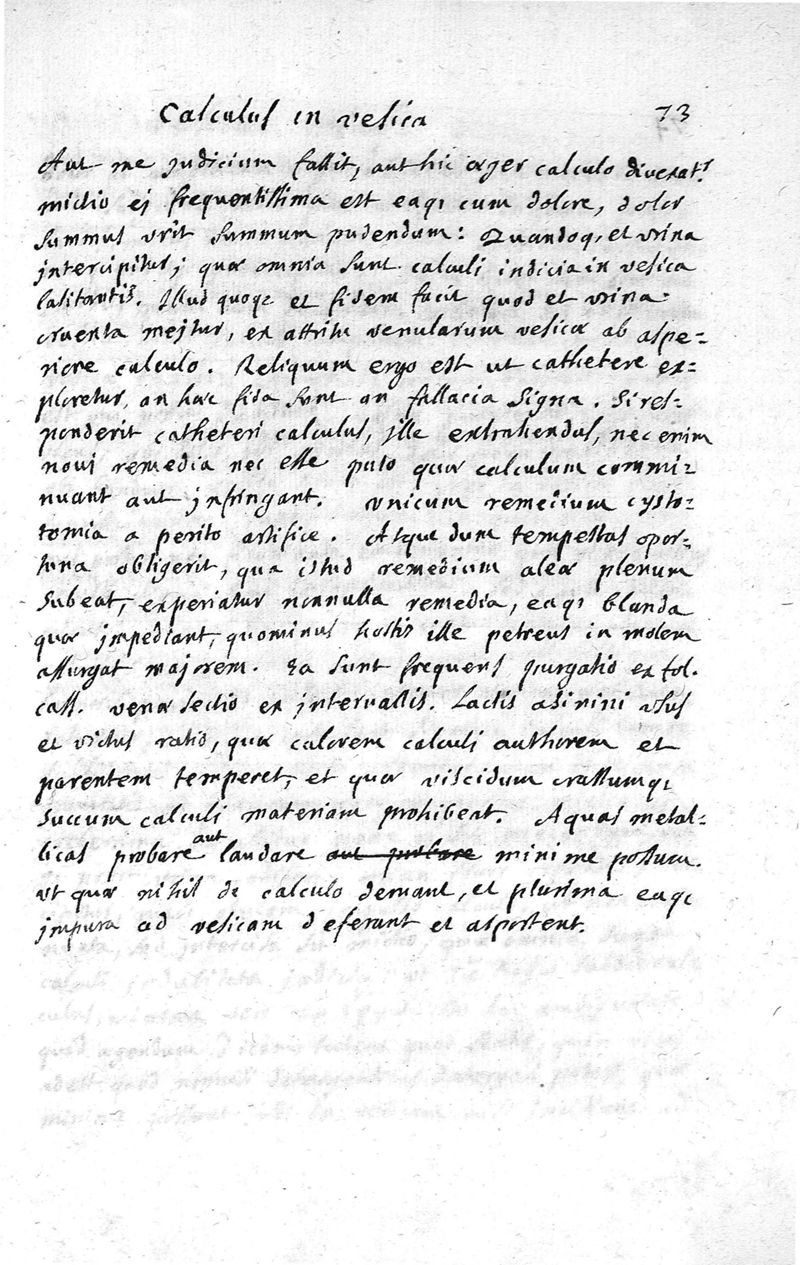 Calculus in vesica 73
Aut me judicium fallit, aut hic æger calculo divexatr.
mictio ej frequentissima est eaq; cum dolore, dolor
summus urit summum pudendum: Quandoq, et urina
intercipitur; quæ omnia sunt calculi indicia in vesica
latitantis. Illud quoqe et fidem facit quod et urina
cruenta mejtur, ex attritu venularum vesicæ ab aspe=
riore calculo. Reliquum ergo est ut cathetere ex=
ploretur, an hæc fida sunt an fallacia signa. Si res=
ponderit catheteri calculus, ille extrahendus, nec enim
novi remedia nec esse puto quæ calculum commi=
nuant aut jnfringant. unicum remedium cysto=
tomia a perito artifice. Atque dum tempestas opor=
tuna obtigerit, qua istud remedium aleæ plenum
subeat, experiatur nonnulla remedia, eaq; blanda
quæ jmpediant, quominus hostis ille petreus in molem
assurgat majorem. Ea sunt frequens purgatio ex fol.
cass. venæ sectio ex jntervallis. Lactis asinini usus
et victus ratio, quæ calorem calculi authorem et
parentem temperet, et quæ viscidum crassumq;
succum calculi materiam prohibeat. Aquas metal=
licas probare aut laudare aut probare minime possum.
ut quæ nihil de calculo demant, et plurima eaq;
jmpura ad vesicam deferant et asportent.